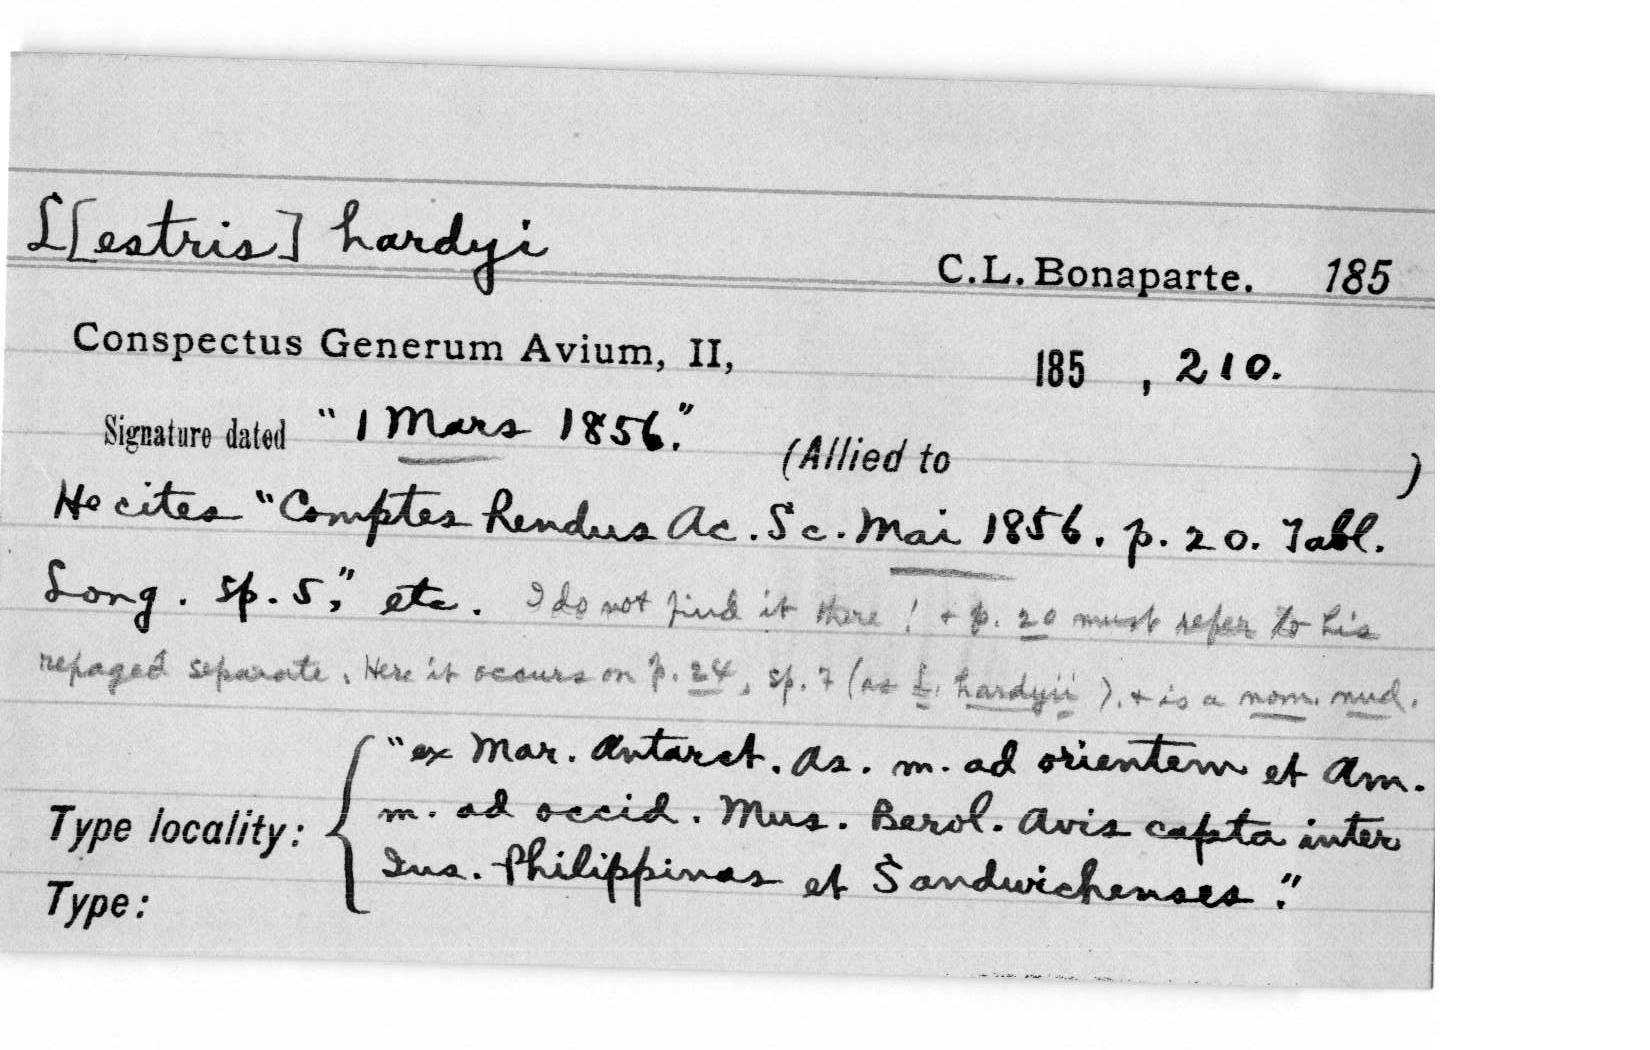 L[estris] hardyi
C.L. Bonaparte. 185
Conspectus Generum Avium, II, 185 , 210.
Signature dated "1 Mars 1856." (Allied to )
He cites "Comptes Rendus Ac. Sc. Mai 1856. p. 20. Tabl.
Long. sp. 5," etc. I do not find it there! + p. 20 must refer to his
repaged separate. Here it occurs on p. 24, sp. 7 (as L. hardyii). + is a nom. nud.
"ex Mar. Antarct. As. m. ad orientem et Am.
Type locality: m. ad occid. Mus. Berol. Avis capta inter
Ins. Philippinas et Sandwichenses."
Type: